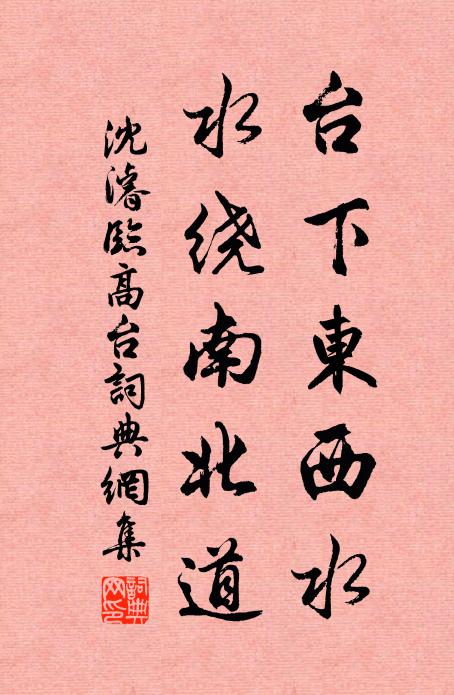 台下東西水
水绕南北道
沈濬臨高台詞典網集
詞典
网印